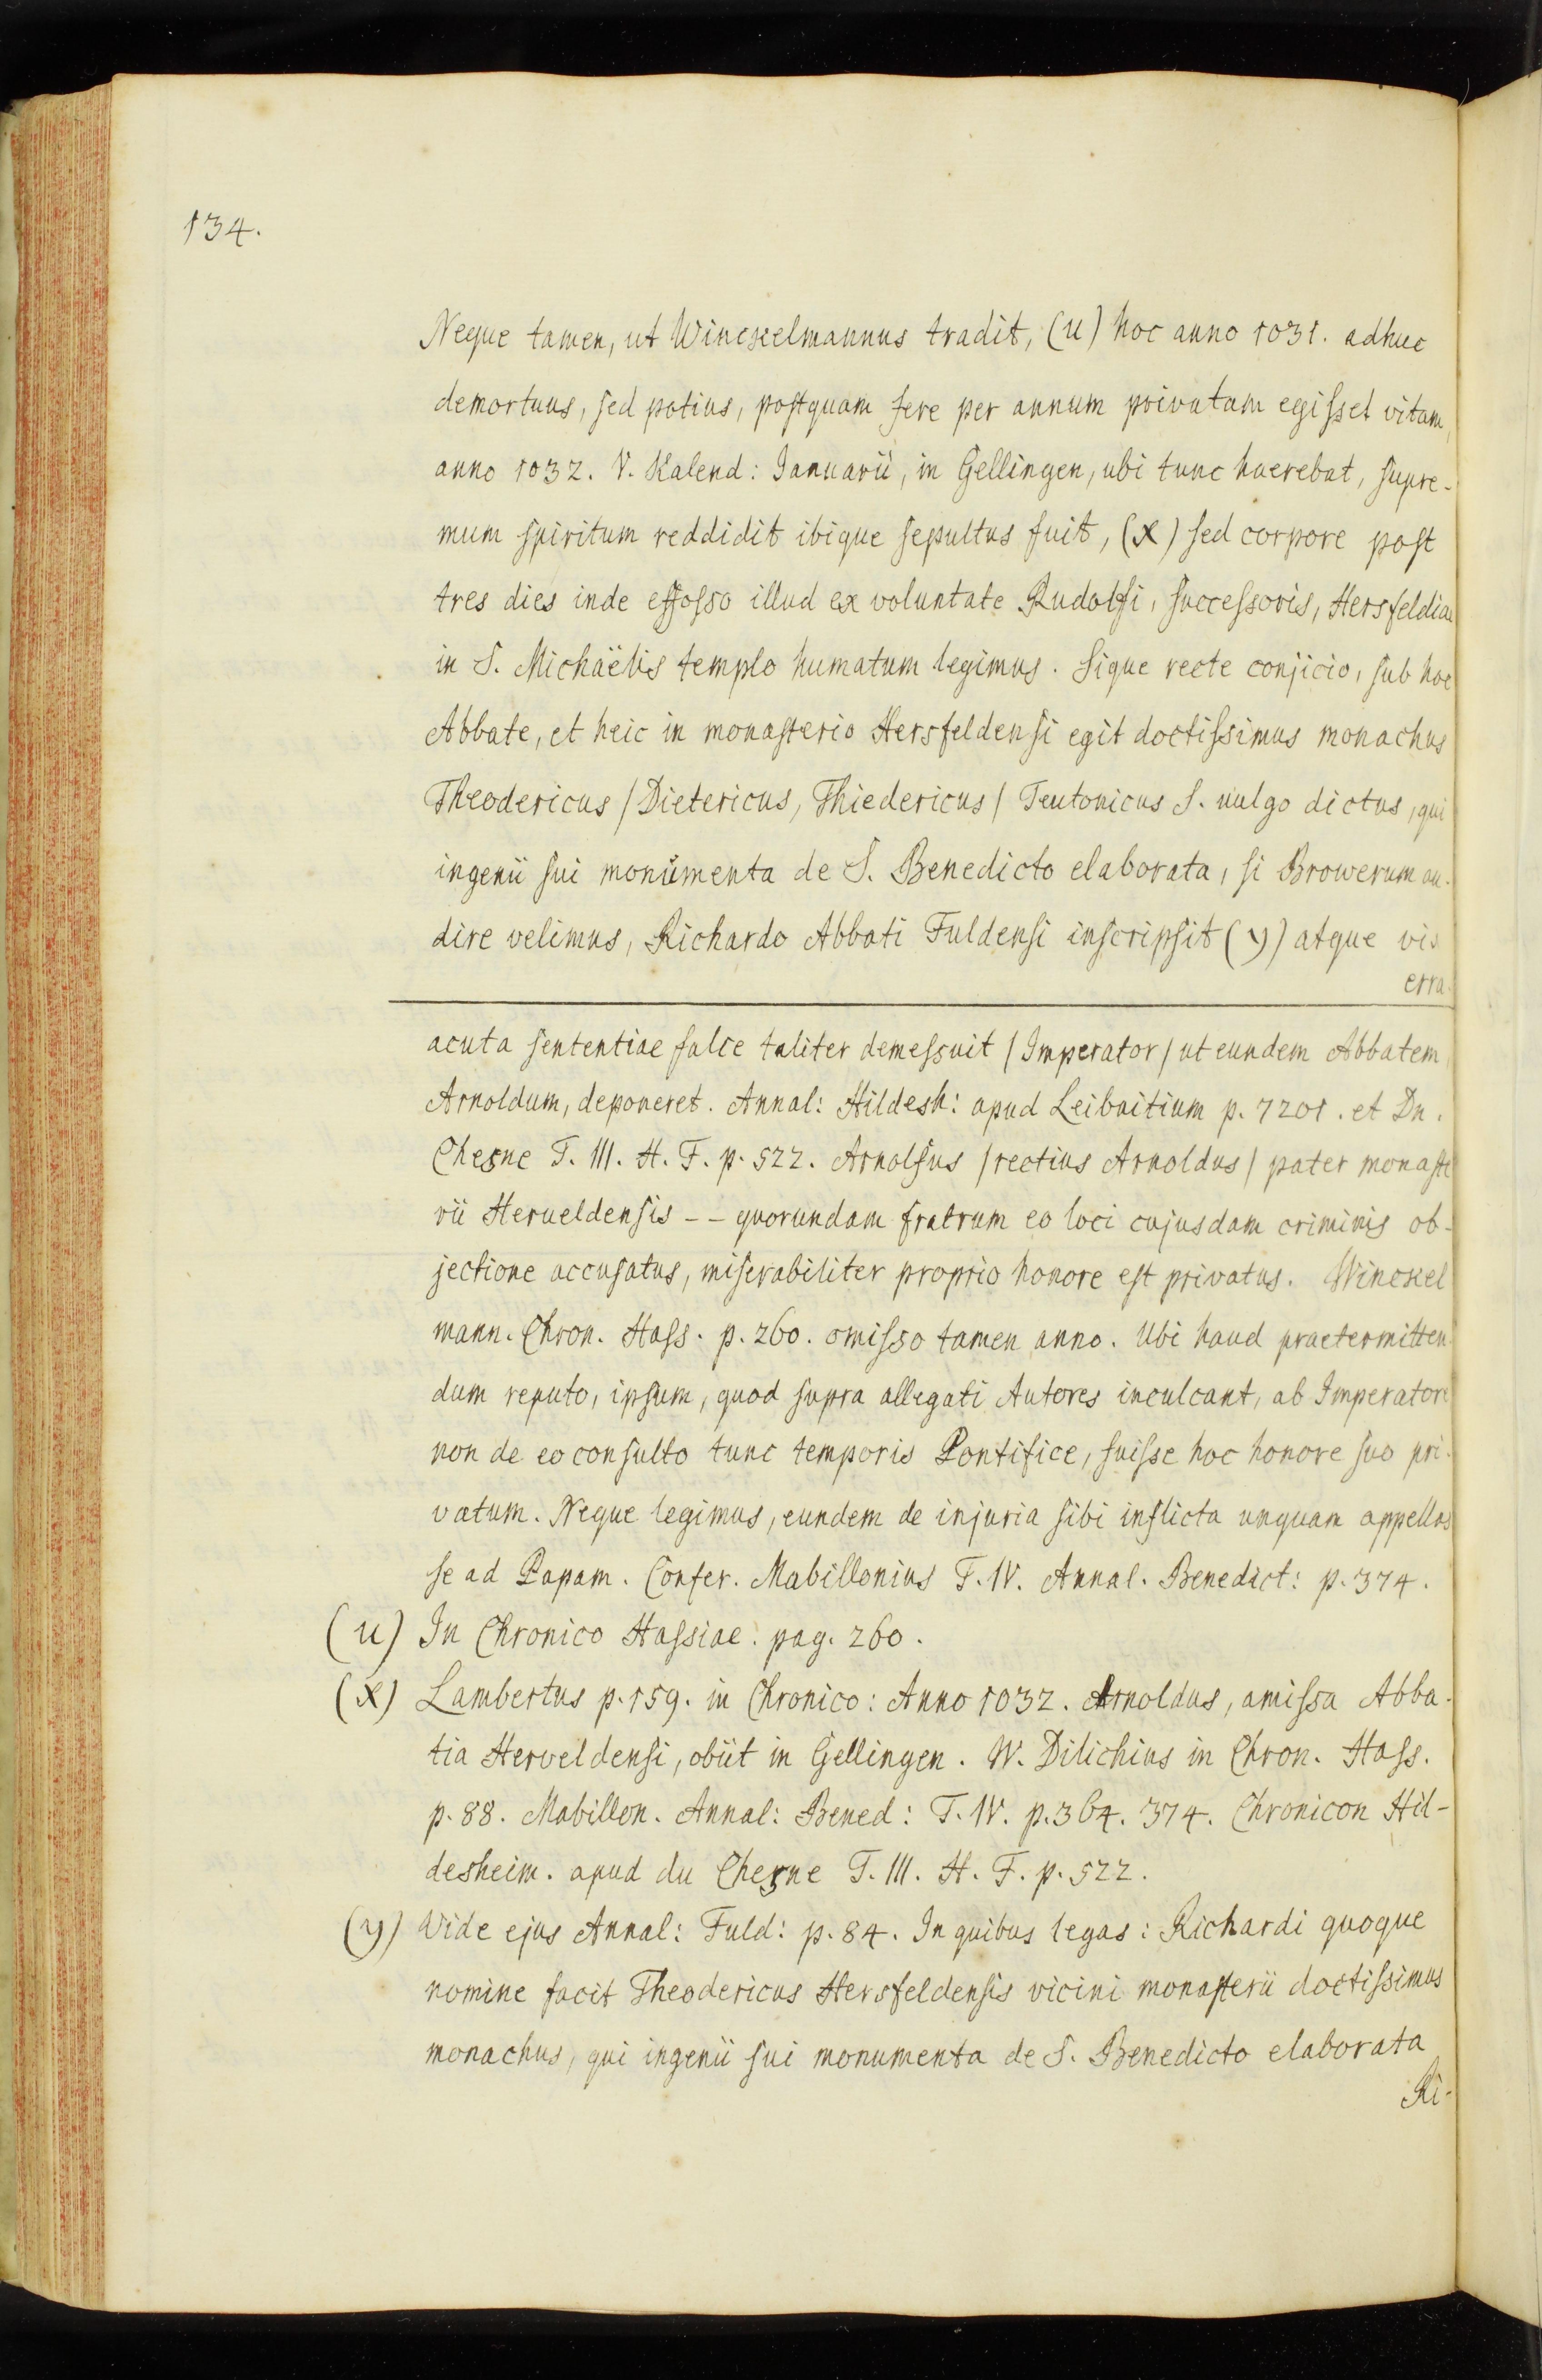 134.
Neque tamen, ut Winckelmannus tradit, (u) hoc anno 1031. adhuc
demortuus, sed potius, postquam fere per annum privatam egisset vitam,
anno 1032. V. Kalend: Ianuarii, in Gellingen, ubi tunc haerebat, supre-
mum spiritum reddidit ibique sepultus fuit, (x) sed corpore post
tres dies inde effosso illud ex voluntate Rudolfi, successoris, Hersfeldiae
in S. Michaëlis templo humatum legimus. Sique recte conjicio, sub hoc
Abbate, et heic in monasterio Hersfeldensi egit doctissimus monachus
Theodericus /Dietericus, Thiedericus/ Teutonicus S. vulgo dictus, qui
ingenii sui monumenta de S. Benedicto elaborata, si Browerum au-
dire velimus, Richardo Abbati Fuldensi inscripsit (y) atque vis
erra-
acuta sententiae falce taliter demessuit /Imperator/ ut eundem Abbatem
Arnoldum, deponeret. Annal: Hildesh: apud Leibnitium p. 7201. et Du.
Chesne T. III. H. F. p. 522. Arnolfus /rectius Arnoldus/ pater monaste
rii Herueldensis -- quorundam fratrum eo loci cujusdam criminis ob-
jectione accusatus, miserabiliter proprio honore est privatus. Winckel
mann. Chron. Hass. p. 260. omisso tamen anno. Ubi haud praetermitten
dum reputo, ipsum, quod supra allegati Autores inculcant, ab Imperatore
non de eo consulto tunc temporis Pontifice, fuisse hoc honore suo pri-
vatum. Neque legimus, eundem de injuria sibi inflicta unquam appellas
se ad Papam. Confer. Mabillonius T. IV. Annal. Benedict: p. 374.
(u) In Chronico Hassiae. pag. 260.
(x) Lambertus p. 159. in Chronico: Anno 1032. Arnoldus, amissa Abba-
tia Herveldensi, obiit in Gellingen. W. Dilichius in Chron. Hass.
p. 88. Mabillon. Annal: Bened: T. IV. p. 364. 374. Chronicon Hil-
desheim. apud du Chesne T. III. H. F. p. 522.
(y) Vide ejus Annal: Fuld: p. 84. In quibus legas: Richardi quoque
nomine facit Theodericus Hersfeldensis vicini monasterii doctissimus
monachus, qui ingenii sui monumenta de S. Benedicto elaborata
Ri-